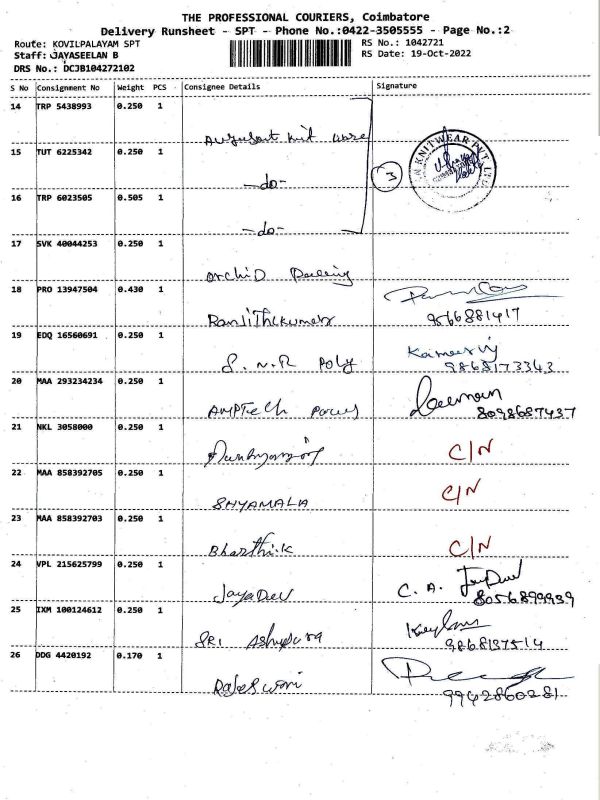 THE PROFESSIONAL COURIERS, Coimbatore
Delivery Runsheet - SPT - Phone No.:0422-3505555 - Page No.:2
Route: KOVILPALAYAM SPT
RS No.: 1042721
Staff: JAYASEELAN B
RS Date: 19-Oct-2022
DRS No.: DCJB104272102
S No Consignment No Weight PCS Consignee Details Signature
14 TRP 5438993 0.250 1
knit
15 TUT 6225342 0.250 1
-do-
3
KNITWEAR PVT LTD
16 TRP 6023505 0.505 1
-do-
17 SVK 40044253 0.250 1
orchid
18 PRO 13947504 0.430 1
Ranjithkumar 9566881417
19 EDQ 16560691 0.250 1
S.N.R Poly 9865173343
20 MAA 293234234 0.250 1
AMPTech 8098687437
21 NKL 3058000 0.250 1
C/N
22 MAA 858392705 0.250 1
SHYAMALA C/N
23 MAA 858392703 0.250 1
Bharthik C/N
24 VPL 215625799 0.250 1
JayaDev C. A. 8056899939
25 IXM 100124612 0.250 1
SRI 9868197514
26 DDG 4420192 0.170 1
Rajeswari 9942860281